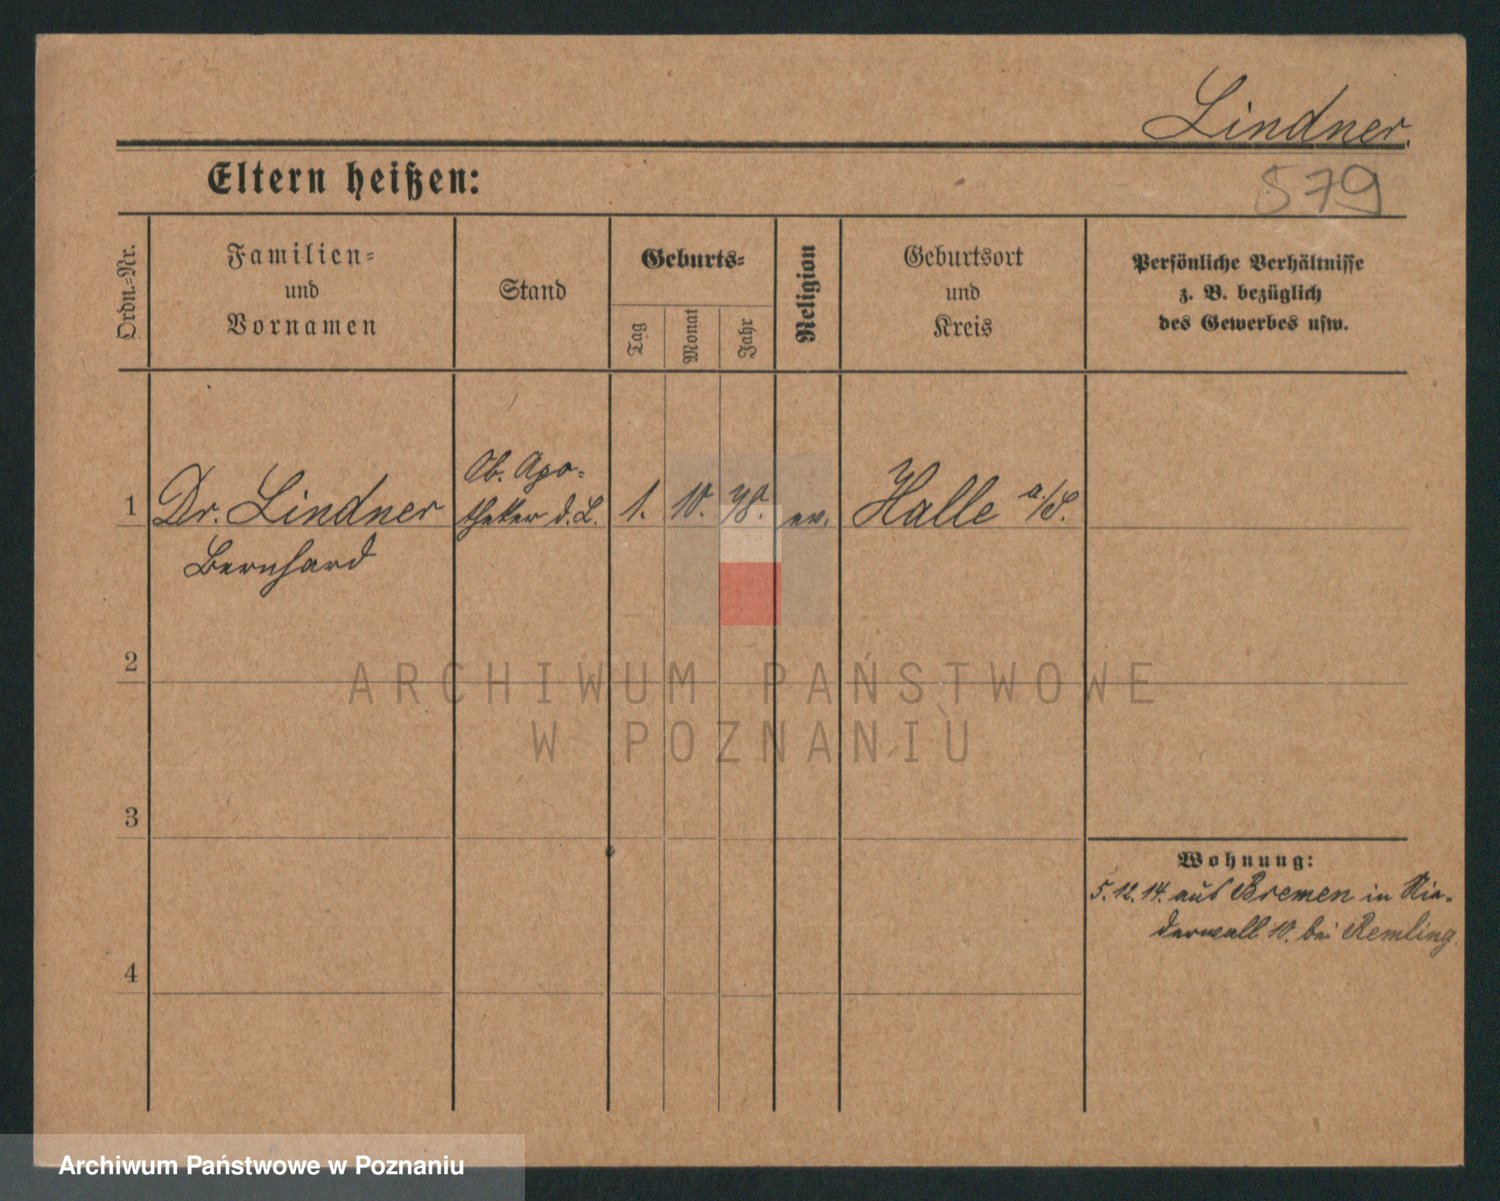 Lindner.
579
Eltern heißen:
Ordn.-Nr.
Familien-
und
Vornamen
Stand
Geburts-
Tag
Monat
Jahr
Religion
Geburtsort
und
Kreis
Persönliche Verhältnisse
z. B. bezüglich
des Gewerbes usw.
1
Dr. Lindner
Bernhard
Ob. Apo-
theker d. L.
1. 10. ev.
Halle a./S.
2
ARCHIWUM PAŃSTWOWE
W POZNANIU
3
Wohnung:
5. 12. 14. aus Bremen in Nie-
derwall 10. bei Remling.
4
Archiwum Państwowe w Poznaniu